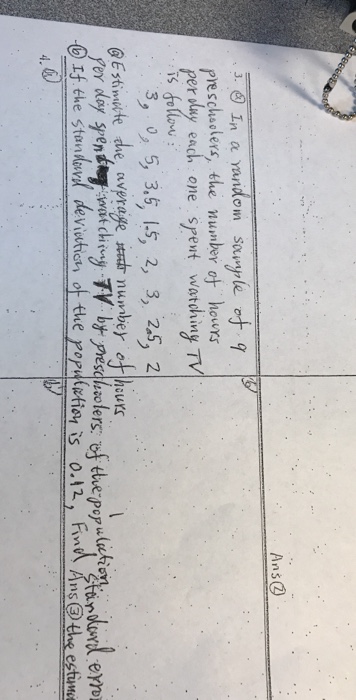 3. ⓐ In a random sample of 9
preschoolers, the number of hours
per day each one spent watching TV
is follow:
3, 0, 5, 3.5, 1.5, 2, 3, 2.5, 2
ⓐ Estimate the average number of hours
per day spent watching TV by preschoolers of the population
ⓑ If the standard deviation of the population is 0.12, Find the
standard error
Ans ③
4. ⓐ
ⓑ
ⓑ
Ans ②